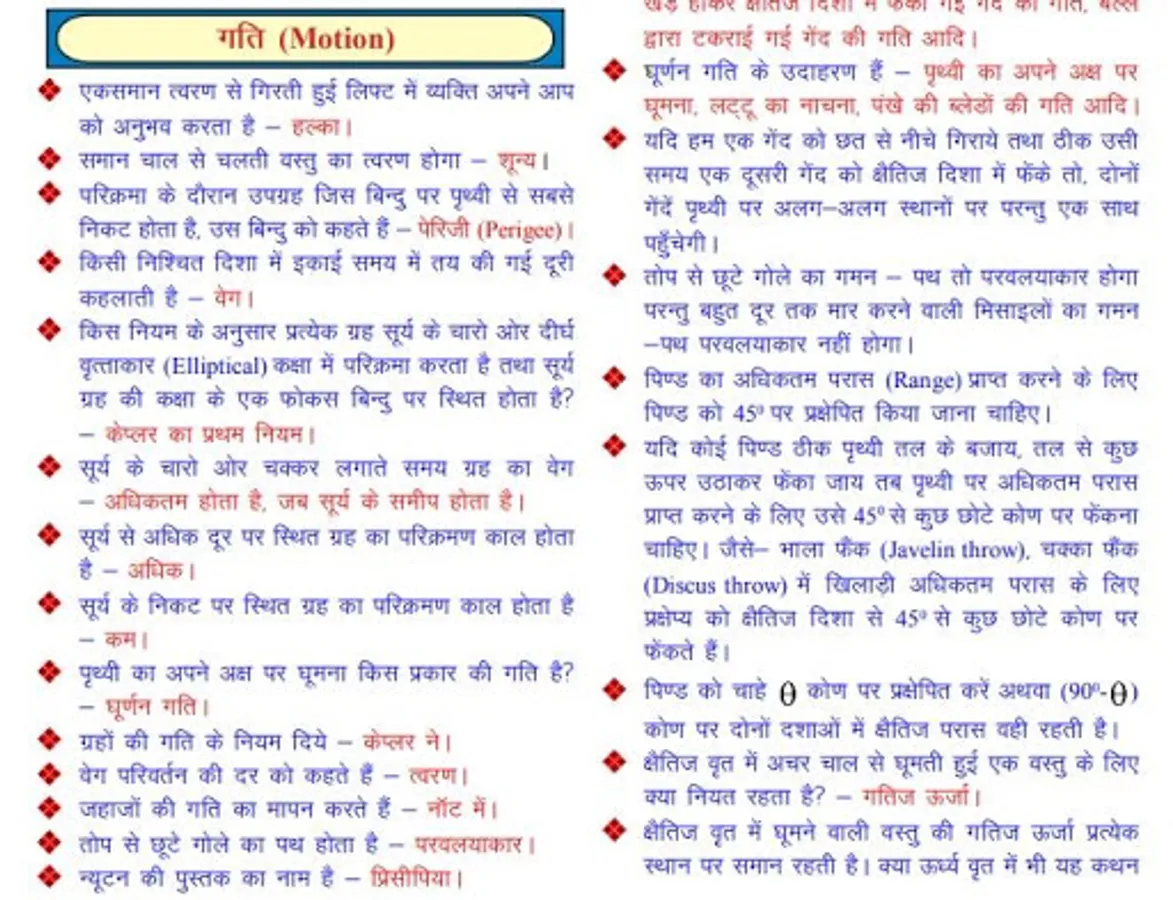 गति (Motion)
एकसमान त्वरण से गिरती हुई लिफ्ट में व्यक्ति अपने आप
को अनुभव करता है – हल्का।
समान चाल से चलती वस्तु का त्वरण होगा – शून्य।
परिक्रमा के दौरान उपग्रह जिस बिन्दु पर पृथ्वी से सबसे
निकट होता है, उस बिन्दु को कहते हैं – पेरिजी (Perigee)।
किसी निश्चित दिशा में इकाई समय में तय की गई दूरी
कहलाती है – वेग।
किस नियम के अनुसार प्रत्येक ग्रह सूर्य के चारो ओर दीर्घ
वृत्ताकार (Elliptical) कक्षा में परिक्रमा करता है तथा सूर्य
ग्रह की कक्षा के एक फोकस बिन्दु पर स्थित होता है?
– केप्लर का प्रथम नियम।
सूर्य के चारो ओर चक्कर लगाते समय ग्रह का वेग
– अधिकतम होता है, जब सूर्य के समीप होता है।
सूर्य से अधिक दूर पर स्थित ग्रह का परिक्रमण काल होता
है – अधिक।
सूर्य के निकट पर स्थित ग्रह का परिक्रमण काल होता है
– कम।
पृथ्वी का अपने अक्ष पर घूमना किस प्रकार की गति है?
– घूर्णन गति।
ग्रहों की गति के नियम दिये – केप्लर ने।
वेग परिवर्तन की दर को कहते हैं – त्वरण।
जहाजों की गति का मापन करते हैं – नॉट में।
तोप से छूटे गोले का पथ होता है – परवलयाकार।
न्यूटन की पुस्तक का नाम है – प्रिंसीपिया।
खड़े होकर क्षैतिज दिशा में फेंकी गई गेंद की गति, बल्ले
द्वारा टकराई गई गेंद की गति आदि।
घूर्णन गति के उदाहरण हैं – पृथ्वी का अपने अक्ष पर
घूमना, लट्टू का नाचना, पंखे की ब्लेडों की गति आदि।
यदि हम एक गेंद को छत से नीचे गिराये तथा ठीक उसी
समय एक दूसरी गेंद को क्षैतिज दिशा में फेंके तो, दोनों
गेंदें पृथ्वी पर अलग–अलग स्थानों पर परन्तु एक साथ
पहुँचेगी।
तोप से छूटे गोले का गमन – पथ तो परवलयाकार होगा
परन्तु बहुत दूर तक मार करने वाली मिसाइलों का गमन
–पथ परवलयाकार नहीं होगा।
पिण्ड का अधिकतम परास (Range) प्राप्त करने के लिए
पिण्ड को 45⁰ पर प्रक्षेपित किया जाना चाहिए।
यदि कोई पिण्ड ठीक पृथ्वी तल के बजाय, तल से कुछ
ऊपर उठाकर फेंका जाय तब पृथ्वी पर अधिकतम परास
प्राप्त करने के लिए उसे 45⁰ से कुछ छोटे कोण पर फेंकना
चाहिए। जैसे– भाला फेंक (Javelin throw), चक्का फेंक
(Discus throw) में खिलाड़ी अधिकतम परास के लिए
प्रक्षेप्य को क्षैतिज दिशा से 45⁰ से कुछ छोटे कोण पर
फेंकते हैं।
पिण्ड को चाहे θ कोण पर प्रक्षेपित करें अथवा (90⁰-θ)
कोण पर दोनों दशाओं में क्षैतिज परास वही रहती है।
क्षैतिज वृत में अचर चाल से घूमती हुई एक वस्तु के लिए
क्या नियत रहता है? – गतिज ऊर्जा।
क्षैतिज वृत में घूमने वाली वस्तु की गतिज ऊर्जा प्रत्येक
स्थान पर समान रहती है। क्या ऊर्ध्व वृत में भी यह कथन